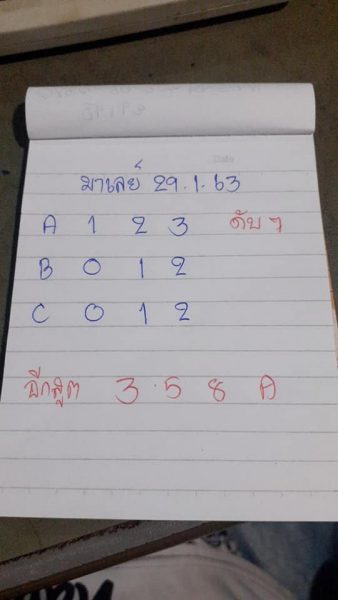 Date
มาเลย์ 29.1.63
A 1 2 3 ดับ ๆ
B 0 1 2
C 0 1 2
อีกสูต 3.5 8 A